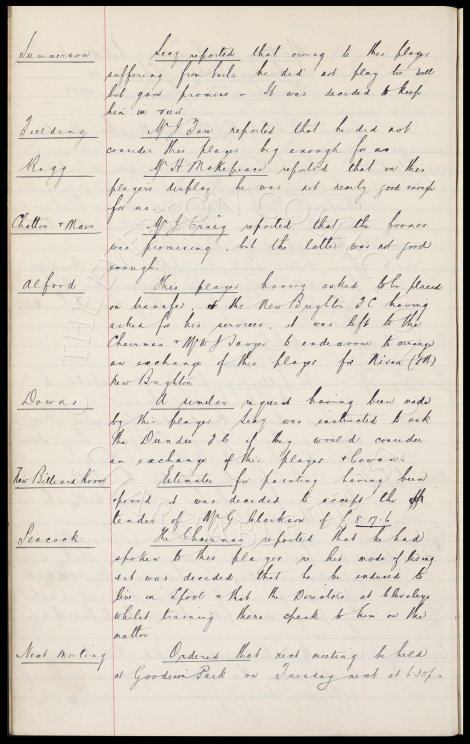 Summerson Secy reported that owing to this player
suffering from boils he did not play too well
but gave promise - It was decided to keep
him in view.
Fielding Mr J Fare reported that he did not
consider this player big enough for us
Rigg Mr H Makepeace reported that on this
players display he was not nearly good enough
for us.
Chatton & Mavir Mr J Craig reported that the former
was promising, but the latter was not good
enough.
Alford This player having asked to be placed
on transfer, & the New Brighton F C having
asked for his services, it was left to the
Chairman & Mr W J Sawyer to endeavour to arrange
an exchange of this player for Nivan
New Brighton
Downs A similar request having been made
by this player Secy was instructed to ask
the Dundee F C if they would consider
an exchange of this Player & Cowan.
New Billiard Room Estimates for painting having been
opened it was decided to accept the
tender of Mr G Clarkson of £ 8.7.6
Peacock The Chairman reported that he had
spoken to this player re his mode of living
& it was decided that he be induced to
live in Lpool & that the Directors at Cleveleys
whilst training there speak to him on the
matter
Next Meeting Ordered that next meeting be held
at Goodison Park on Tuesday next at 6.30 p.